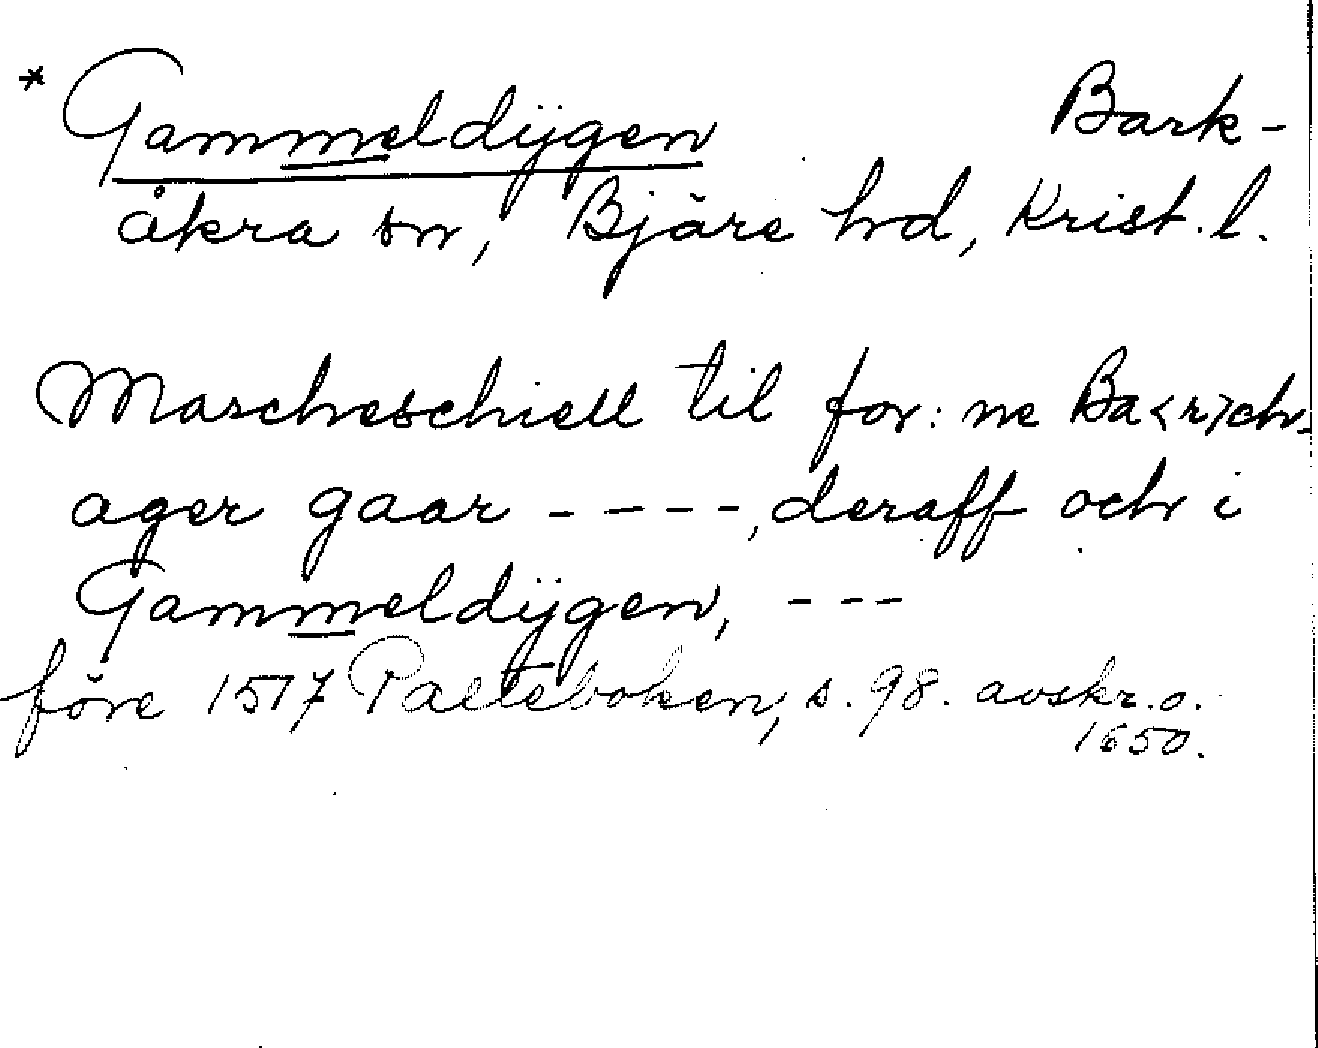 * Gammeldÿgen Bark-
åkra sn, Bjäre hd, Krist. l.
Mascheschiell til for: ne Ba<r>ch-
ager gaar ----, deraff och i
Gammeldÿgen, ---
före 1517 Palteboken, s. 98. avskr. o.
1650.